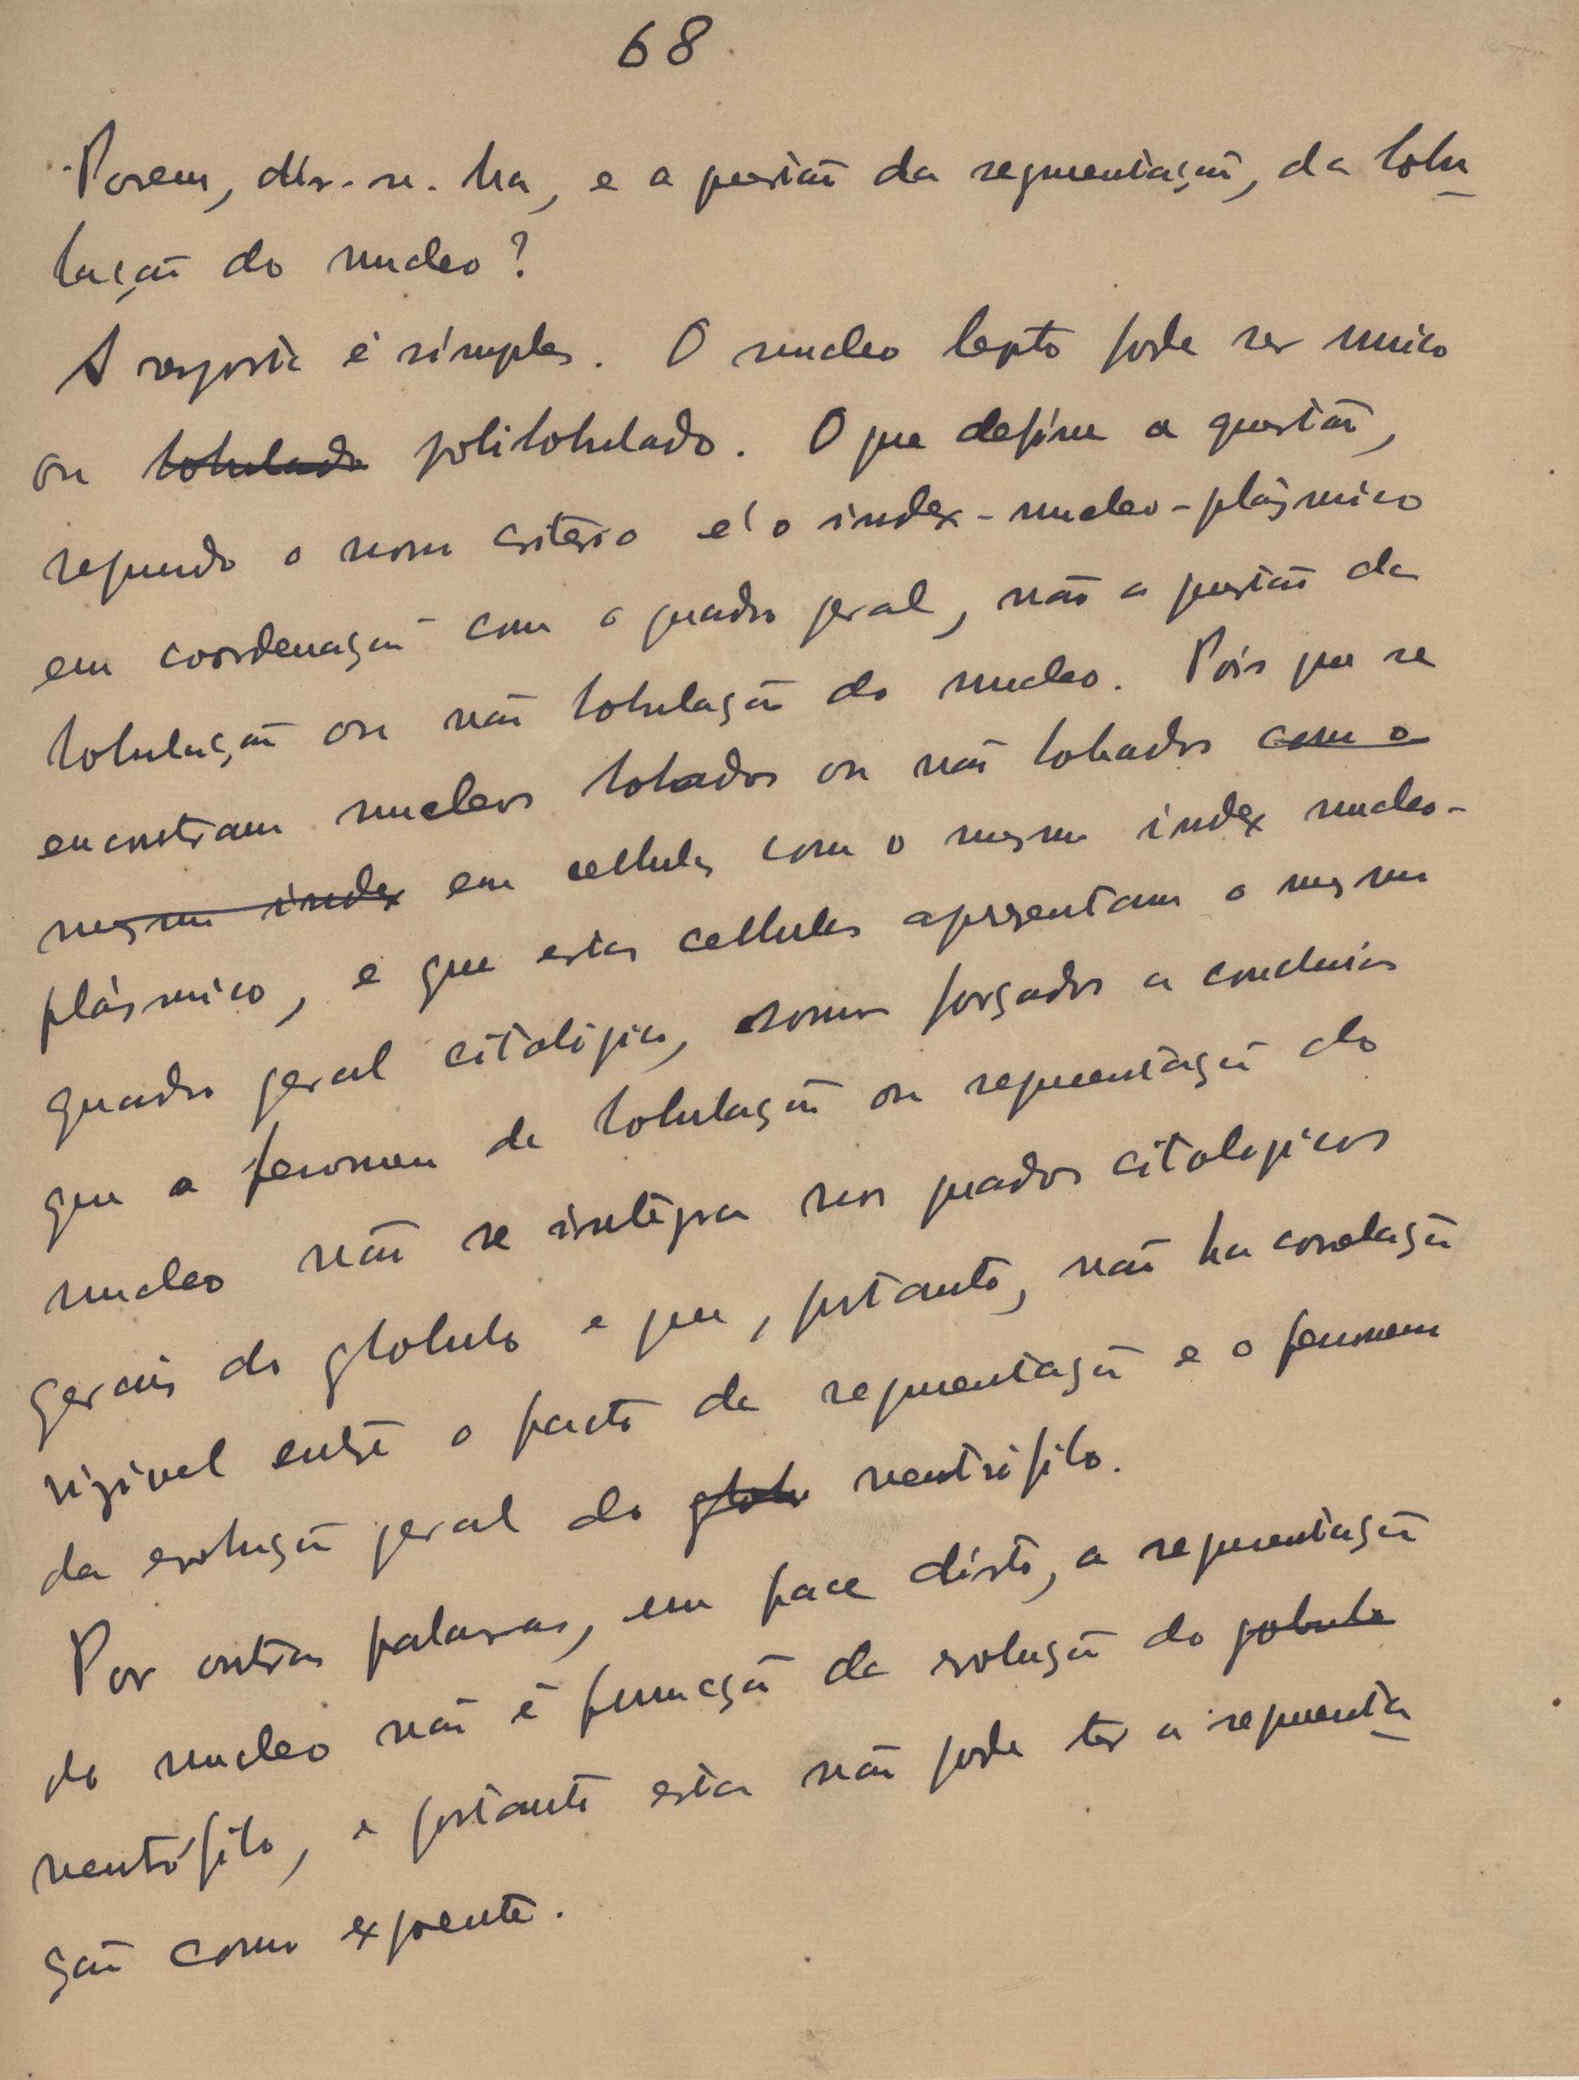 68
Porem, dir-se-ha, e a questão da segmentação, da lobu
lação do nucleo?
A resposta é simples. O nucleo lepto pode ser unico
ou lobulado polilobulado. O que define a questão,
segundo o nosso criterio é o index-nucleo-plásmico
em coordenação com o quadro geral, não a questão da
lobulação ou não lobulação do nucleo. Pois que se
encontram nucleos lobados ou não lobados com o
mesmo index em cellulas com o mesmo index nucleo-
plásmico, e que estas cellulas apresentam o mesmo
quadro geral citológico, somos forçados a concluir
que o fenomeno de lobulação ou segmentação do
nucleo não se intégra nos quadros citologicos
gerais do globulo e que, portanto, não ha correlação
rigivel entre o facto da segmentação e o fenomeno
da evolução geral do globu neutrófilo.
Por outras palavras, em face disto, a segmentação
do nucleo não é funcção da evolução do gobulo
neutrófilo, e portanto esta não pode ter a segmenta
ção como expoente.